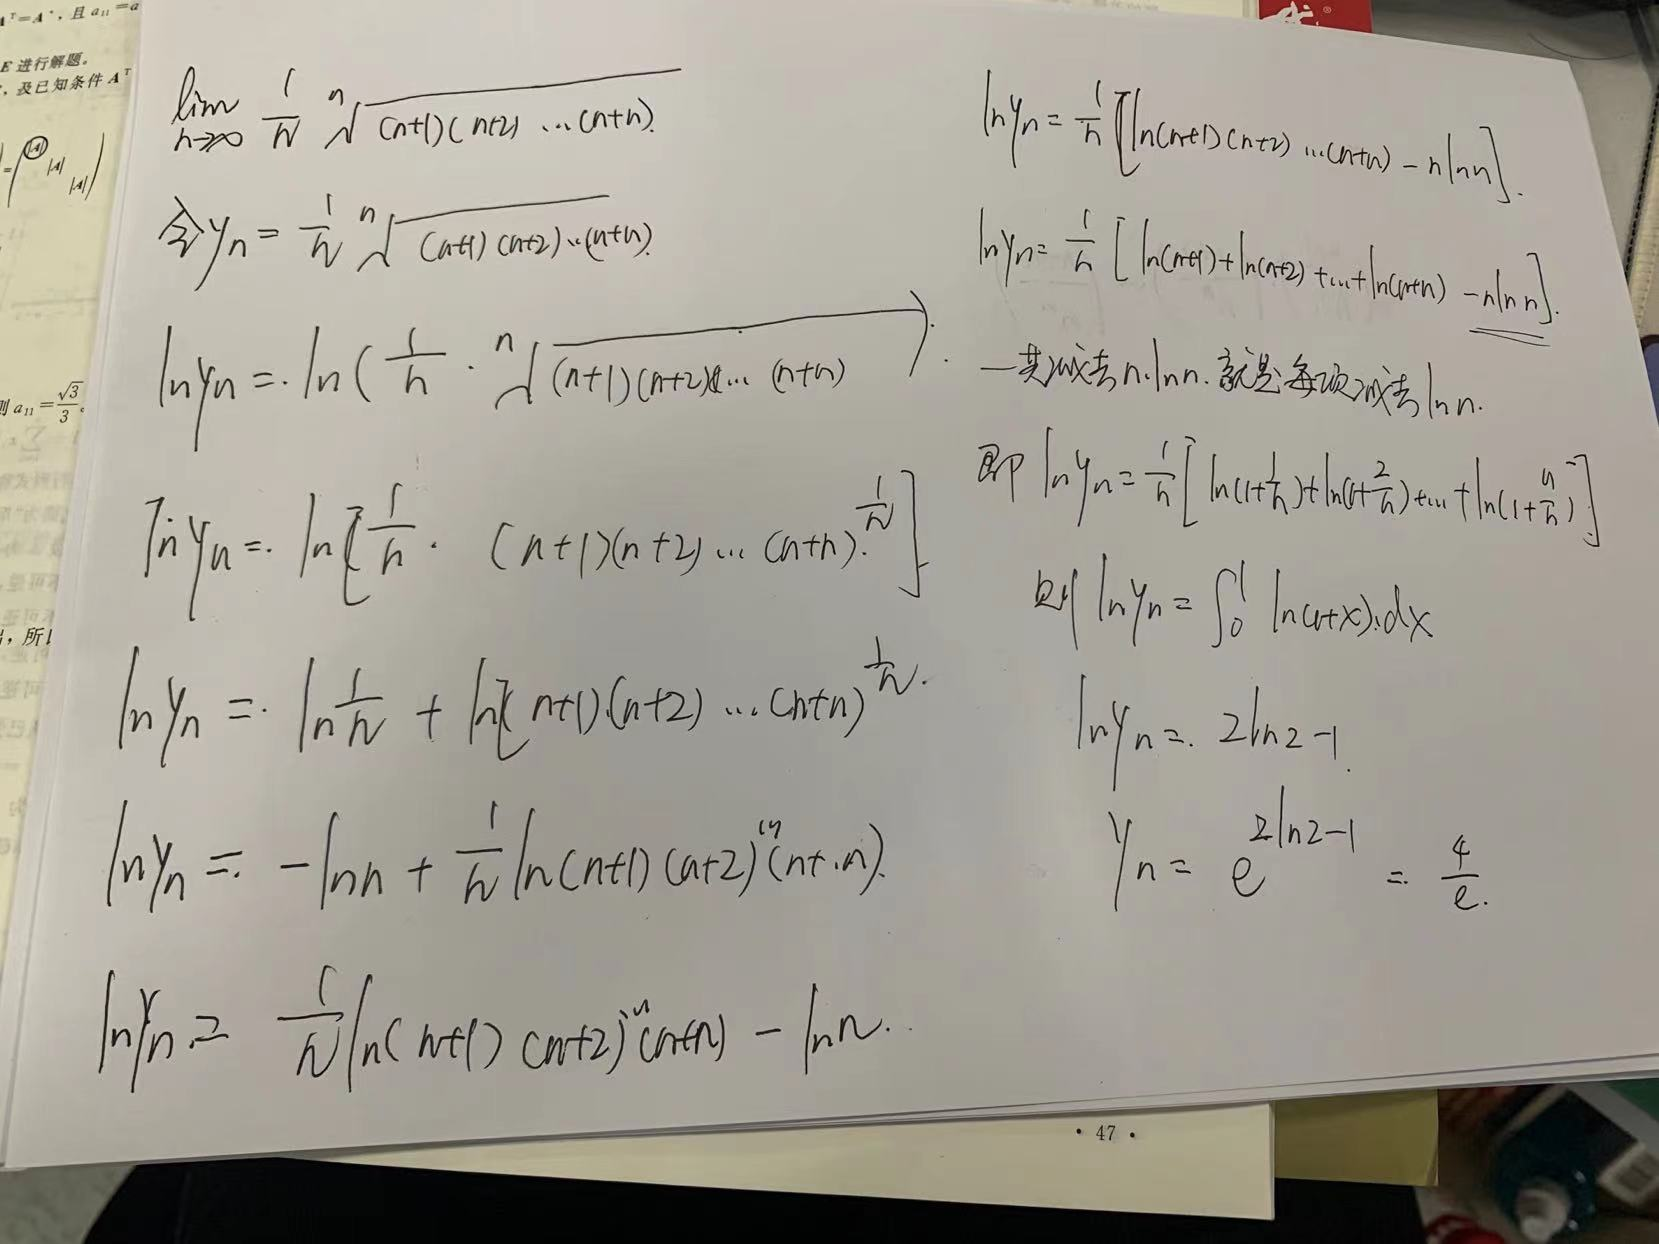 Aᵀ=A*, 且 a₁₁=a
E 进行解题。
, 及已知条件 Aᵀ
|A|
|A|
|A|
则 a₁₁=√3/3。
, 所以
lim n→∞ 1/n ⁿ√(n+1)(n+2)…(n+n).
令 yn = 1/n ⁿ√(n+1)(n+2)…(n+n).
ln yn = ln(1/n · ⁿ√(n+1)(n+2)…(n+n)).
ln yn = ln[1/n · (n+1)(n+2)…(n+n)^(1/n)]
ln yn = ln 1/n + ln[(n+1)(n+2)…(n+n)^(1/n).
ln yn = -ln n + 1/n ln(n+1)(n+2)…(n+n).
ln yn = 1/n ln(n+1)(n+2)…(n+n) - ln n.
ln yn = 1/n [ln(n+1)(n+2)…(n+n) - n ln n].
ln yn = 1/n [ln(n+1)+ln(n+2)+…+ln(n+n) - n ln n].
一共减去 n·ln n. 就是每项减去 ln n.
即 ln yn = 1/n [ln(1+1/n)+ln(1+2/n)+…+ln(1+n/n)]
则 ln yn = ∫₀¹ ln(1+x).dx
ln yn = 2ln2-1.
yn = e^(2ln2-1) = 4/e.
· 47 ·